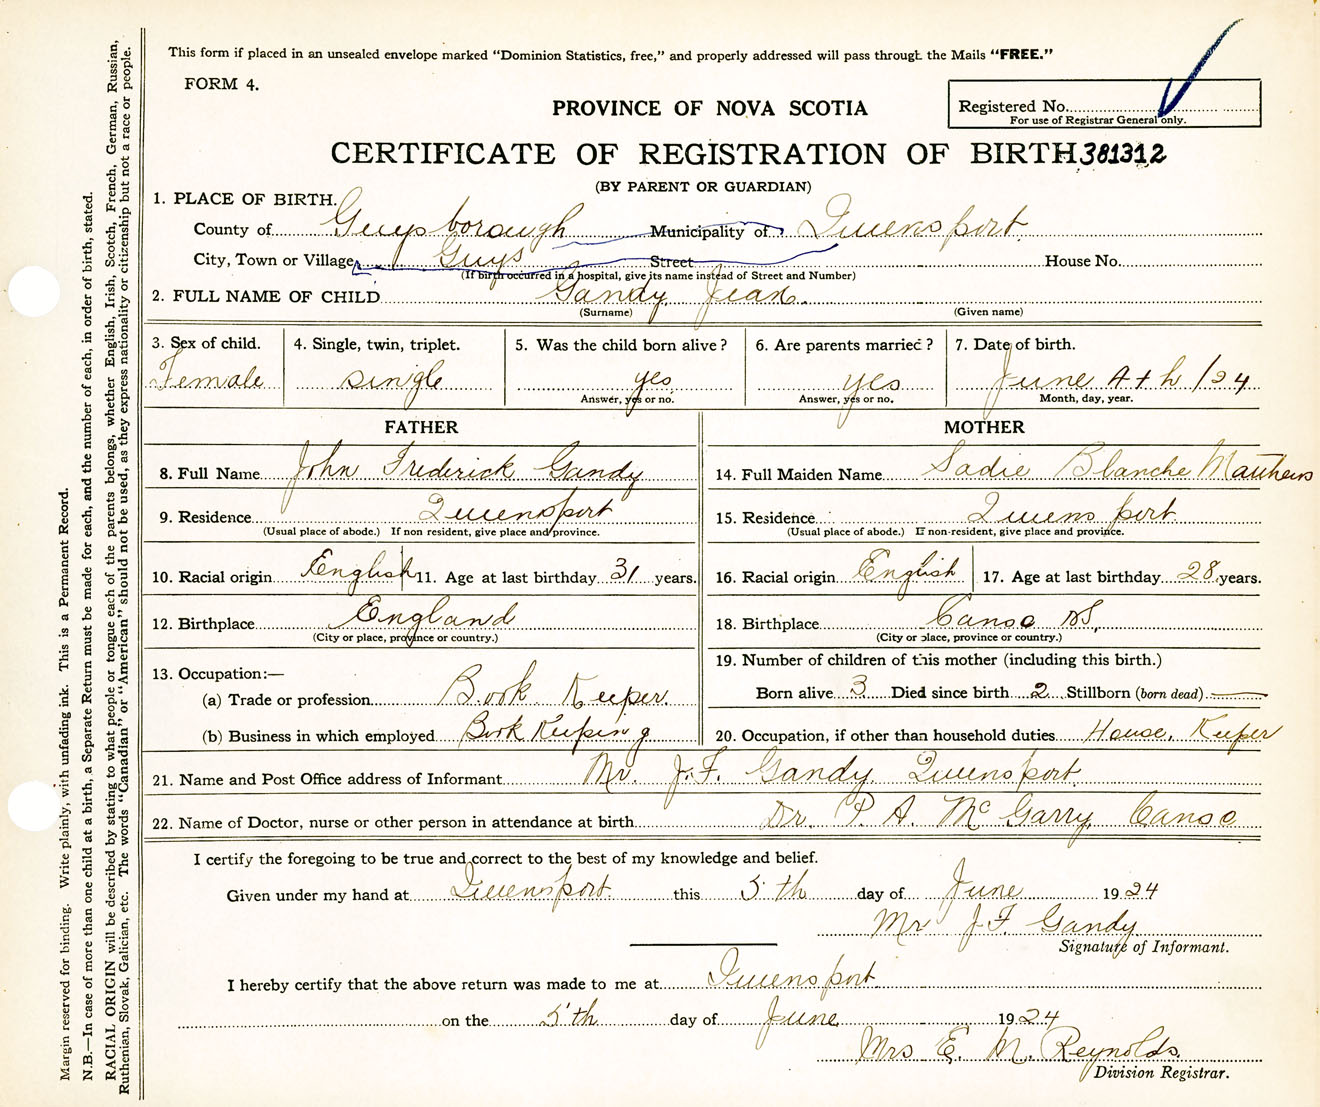 This form if placed in an unsealed envelope marked "Dominion Statistics, free," and properly addressed will pass through the Mails "FREE."
FORM 4.
PROVINCE OF NOVA SCOTIA
Registered No.
For use of Registrar General only.
CERTIFICATE OF REGISTRATION OF BIRTH 381312
(BY PARENT OR GUARDIAN)
1. PLACE OF BIRTH.
County of Guysborough Municipality of Queensport
City, Town or Village Guys Street House No.
(If birth occurred in a hospital, give its name instead of Street and Number)
2. FULL NAME OF CHILD Gandy Jean
(Surname) (Given name)
3. Sex of child. 4. Single, twin, triplet. 5. Was the child born alive? 6. Are parents married? 7. Date of birth.
Female single yes yes June 4th /24
Answer, yes or no. Answer, yes or no. Month, day, year.
FATHER MOTHER
8. Full Name John Frederick Gandy 14. Full Maiden Name Sadie Blanche Matthews
9. Residence Queensport 15. Residence Queensport
(Usual place of abode.) If non resident, give place and province. (Usual place of abode.) If non-resident, give place and province.
10. Racial origin English 11. Age at last birthday 31 years. 16. Racial origin English 17. Age at last birthday 28 years.
12. Birthplace England 18. Birthplace Canso NS,
(City or place, province or country.) (City or place, province or country.)
13. Occupation:— 19. Number of children of this mother (including this birth.)
(a) Trade or profession Book Keeper. Born alive 3 Died since birth 2 Stillborn (born dead) —
(b) Business in which employed Book Keeping 20. Occupation, if other than household duties House. Keeper
21. Name and Post Office address of Informant Mr. J.F. Gandy Queensport
22. Name of Doctor, nurse or other person in attendance at birth Dr. P. A. McGarry Canso
I certify the foregoing to be true and correct to the best of my knowledge and belief.
Given under my hand at Queensport this 5th day of June 1924
Mr J F Gandy
Signature of Informant.
I hereby certify that the above return was made to me at Queensport
on the 5th day of June 1924
Mrs E. M. Reynolds.
Division Registrar.
Margin reserved for binding. Write plainly, with unfading ink. This is a Permanent Record.
N.B.—In case of more than one child at a birth, a Separate Return must be made for each, and the number of each, in order of birth, stated.
RACIAL ORIGIN will be described by stating to what people or tongue each of the parents belongs, whether English, Irish, Scotch, French, German, Russian,
Ruthenian, Slovak, Galician, etc. The words "Canadian" or "American" should not be used, as they express nationality or citizenship but not a race or people.